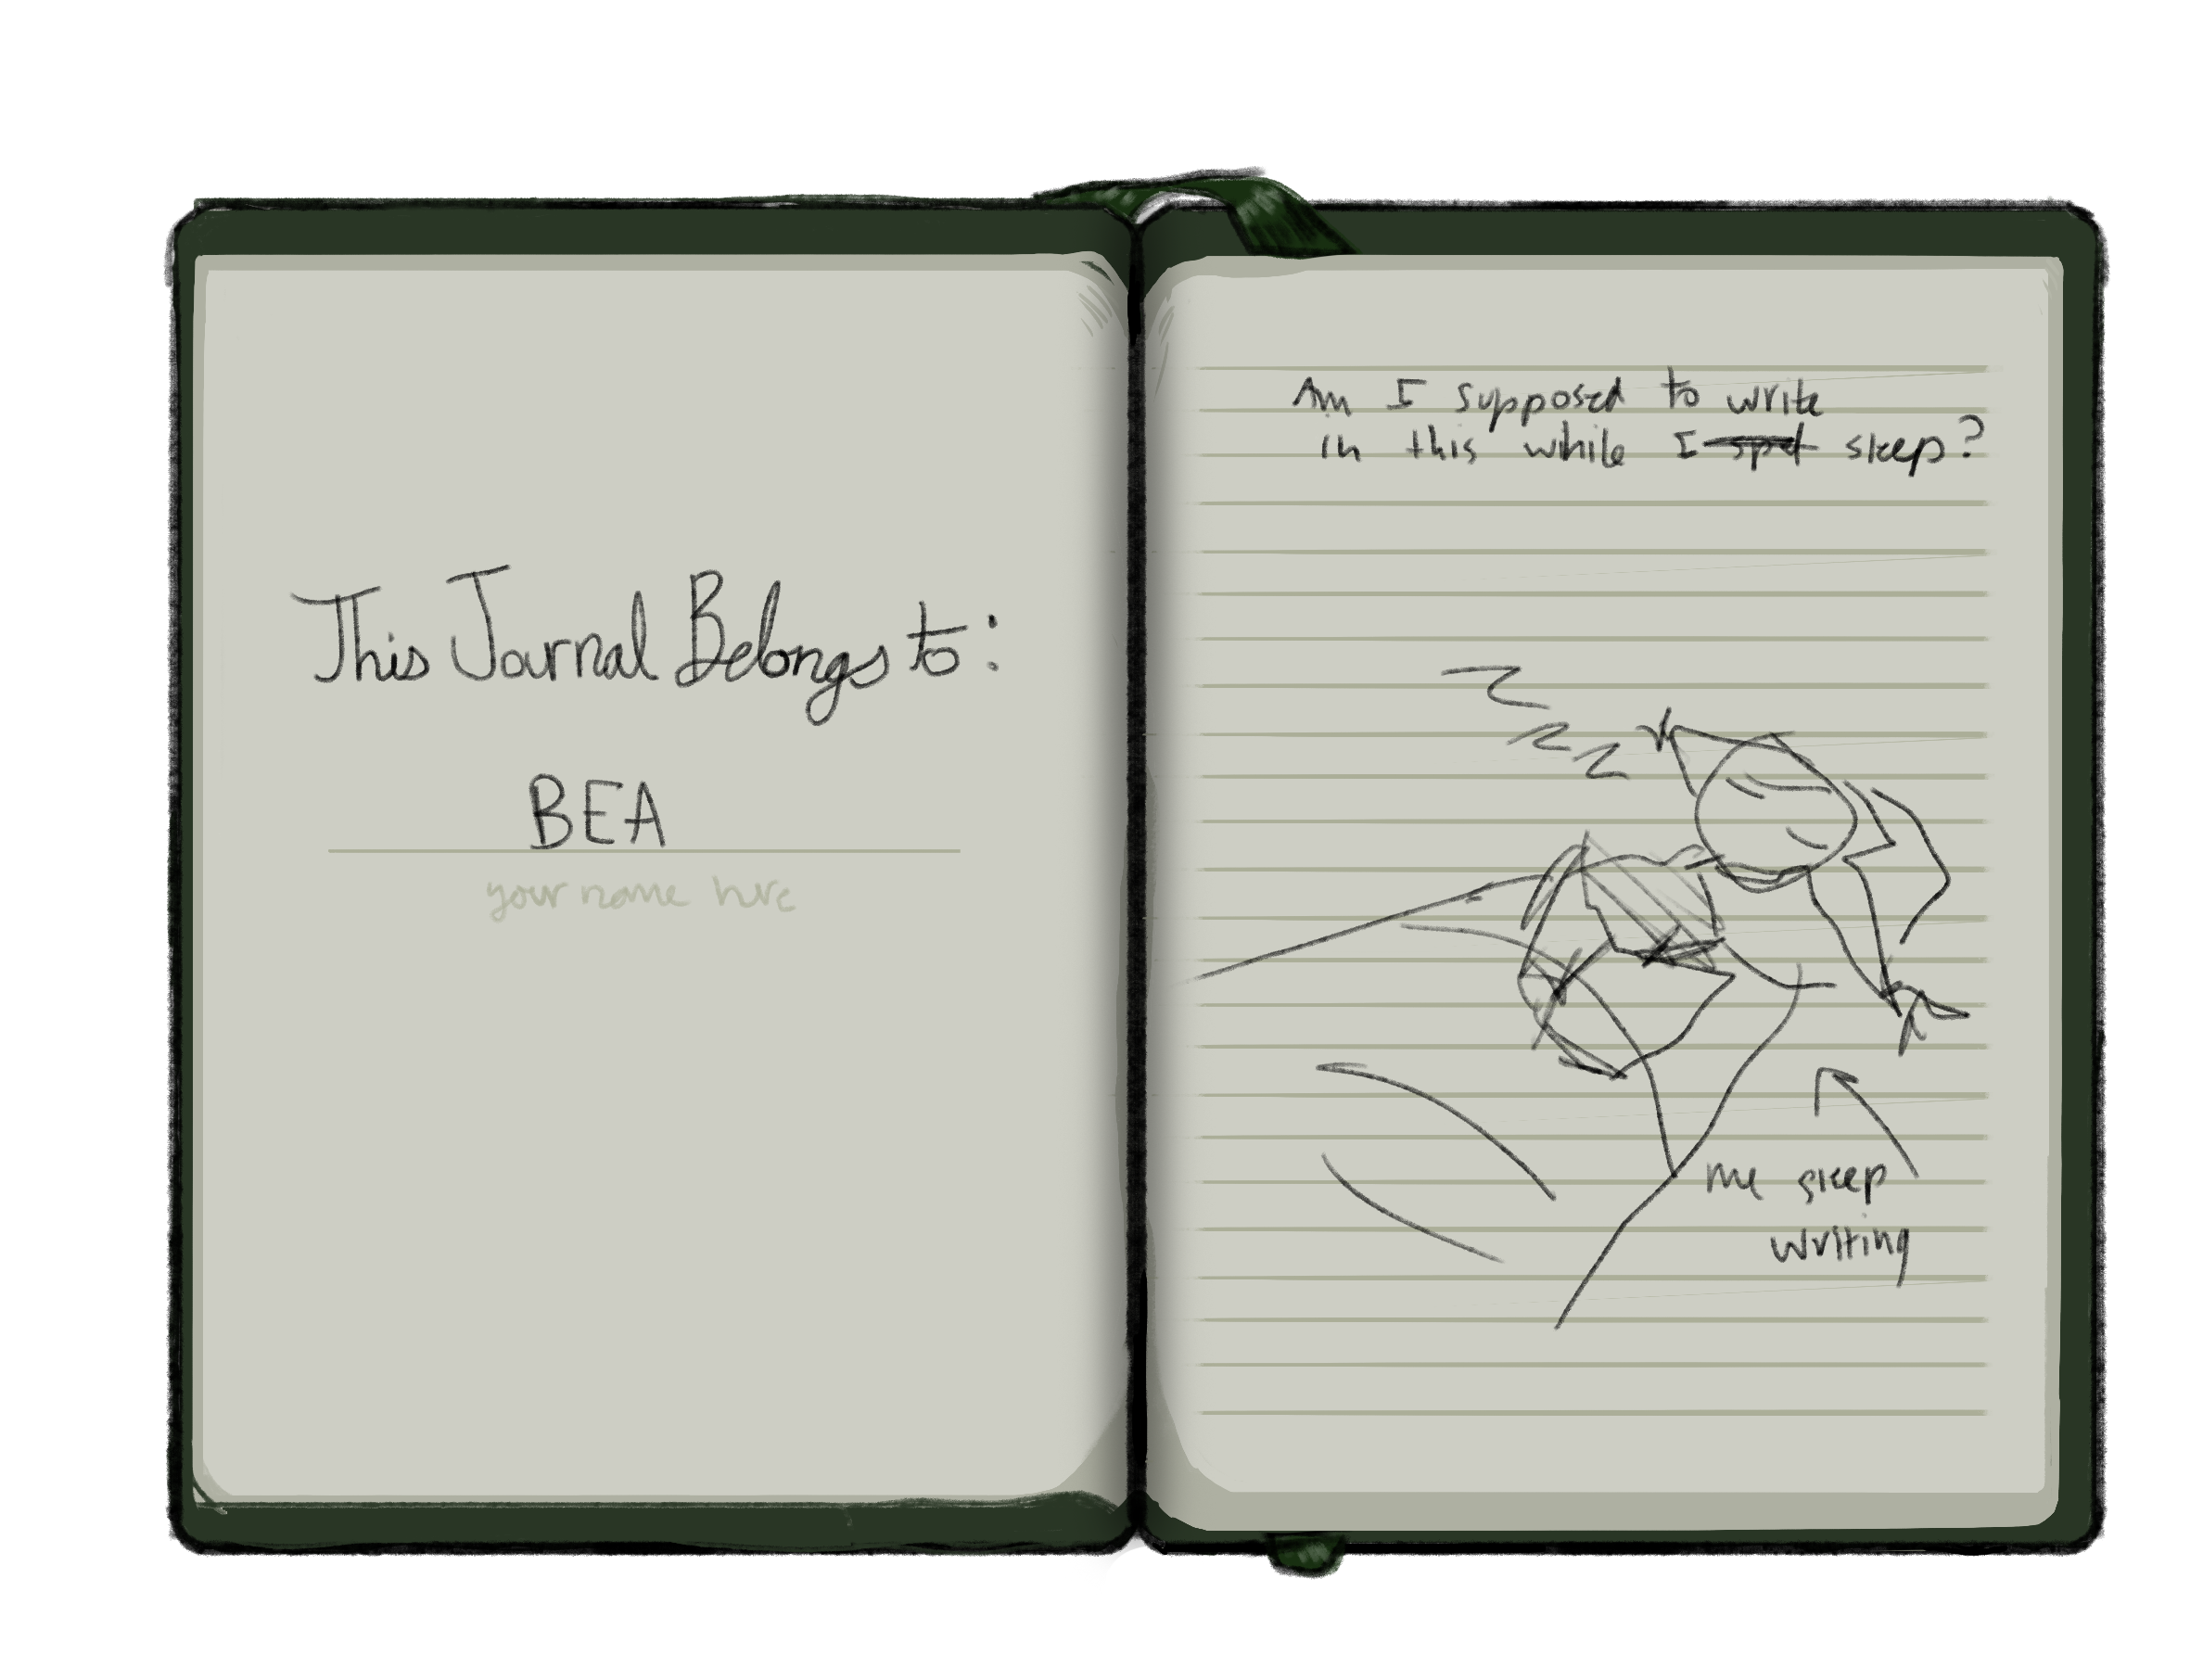 This Journal Belongs to:
BEA
your name here
Am I supposed to write
in this while I spet sleep?
z
z
z
me sleep
writing